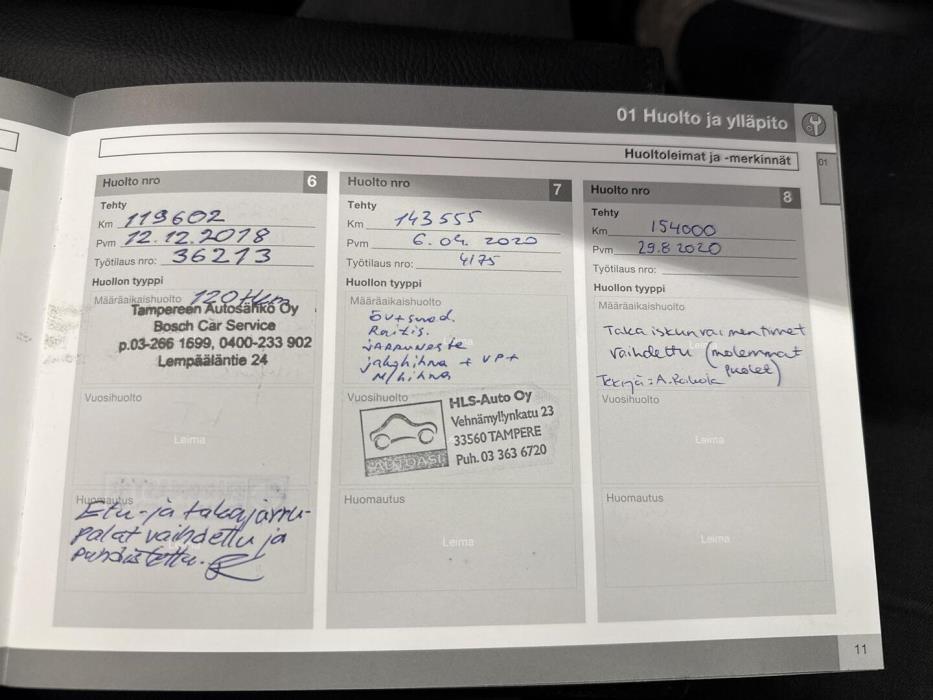 01 Huolto ja ylläpito
Huoltoleimat ja -merkinnät
01
Huolto nro 6
Tehty
Km 119602
Pvm 12.12.2018
Työtilaus nro: 36213
Huollon tyyppi
Määräaikaishuolto 120tkm
Tampereen Autosähkö Oy
Bosch Car Service
p.03-266 1699, 0400-233 902
Lempääläntie 24
Vuosihuolto
Leima
Huomautus
Etu- ja takajarru-
palat vaihdettu ja
puhdistettu.
Huolto nro 7
Tehty
Km 143555
Pvm 6.04. 2020
Työtilaus nro: 4175
Huollon tyyppi
Määräaikaishuolto
Öv+suod.
Raitis.
jarruneste
jakohihna + VP+
M/hihna
Vuosihuolto
HLS-Auto Oy
Vehnämyllynkatu 23
33560 TAMPERE
Puh. 03 363 6720
AUTOASI
Huomautus
Leima
Huolto nro 8
Tehty
Km 154000
Pvm 29.8 2020
Työtilaus nro:
Huollon tyyppi
Määräaikaishuolto
Taka iskunvaimentimet
vaihdettu (molemmat
puolet)
Tekijä: A.
Vuosihuolto
Leima
Huomautus
Leima
11